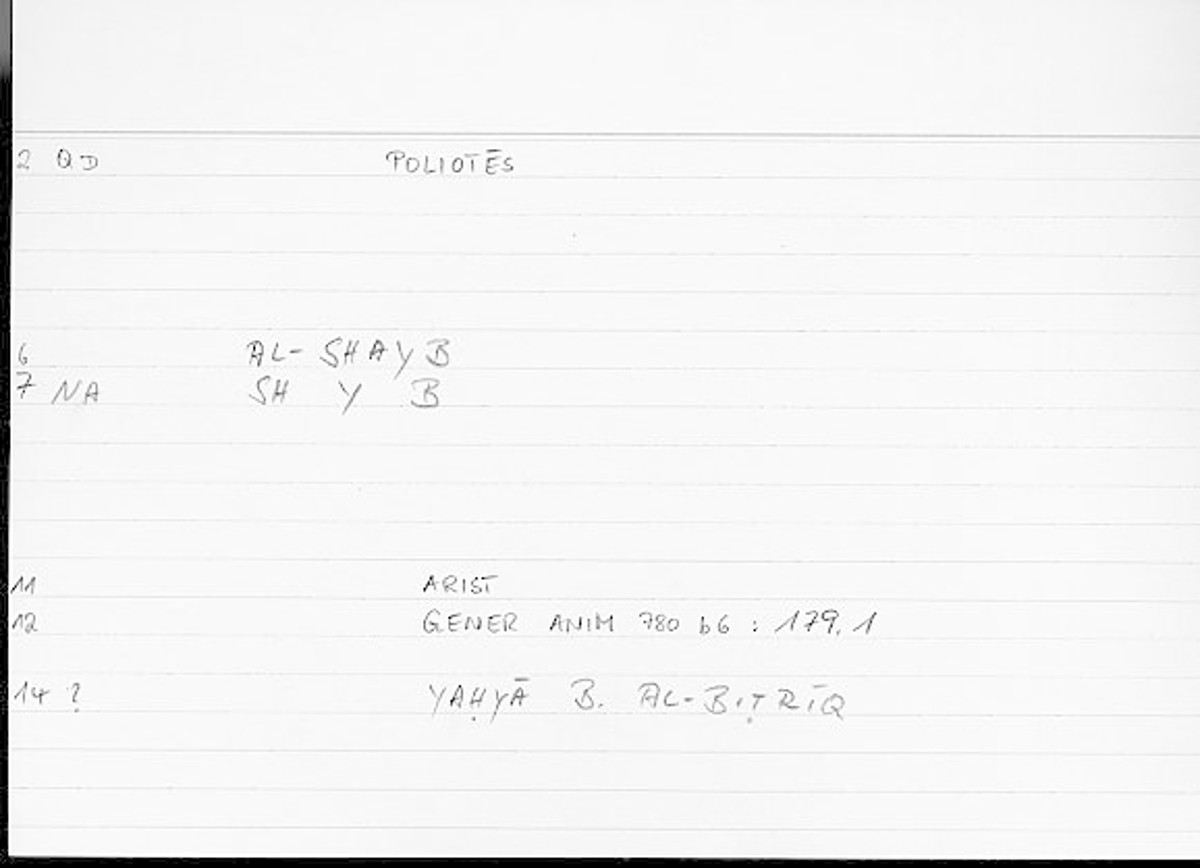 2 QD POLIOTĒS
6 AL- SHAYB
7 NA SH Y B
11 ARIST
12 GENER ANIM 780 b6 : 179,1
14 ? YAḤYĀ B. AL-BIṬRĪQ